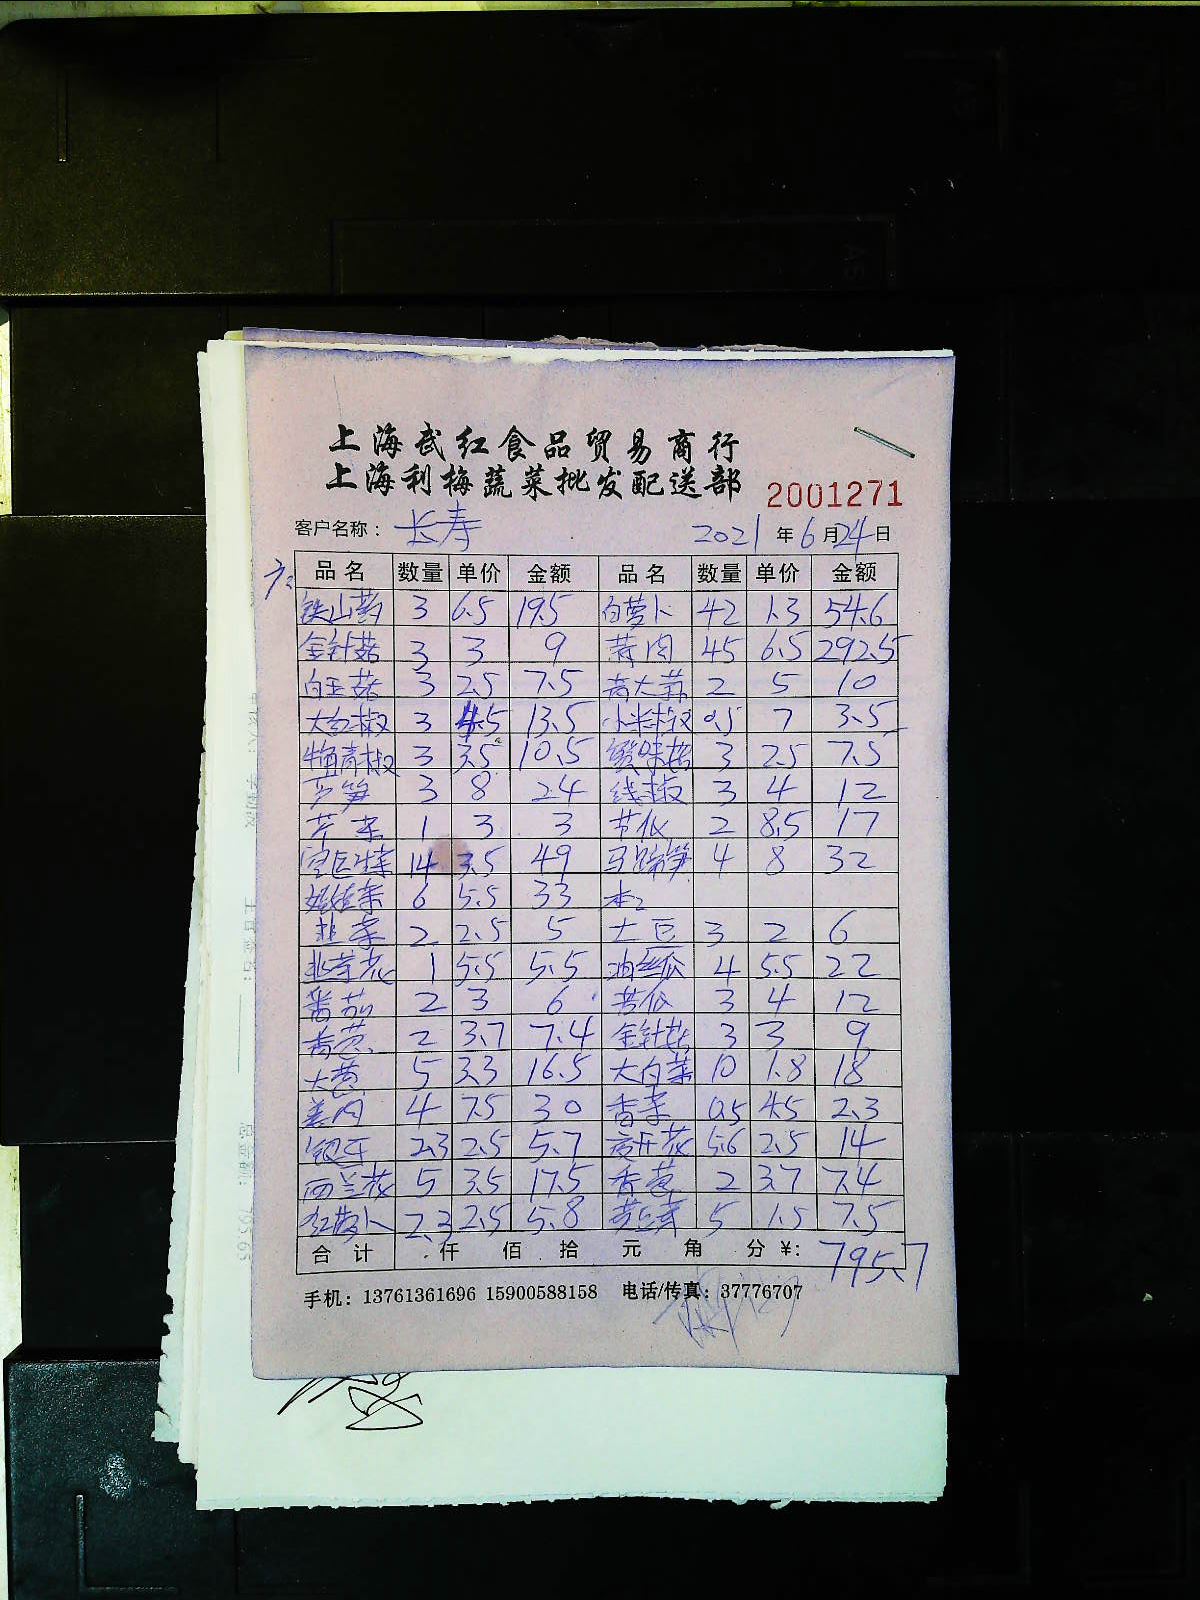 上海武红食品贸易商行
上海利梅蔬菜批发配送部 2001271
客户名称： 长寿 2021年6月24日
品名 数量 单价 金额 品名 数量 单价 金额
铁山药 3 6.5 19.5 白萝卜 42 1.3 54.6
金针菇 3 3 9 蒜肉 45 6.5 292.5
白玉菇 3 2.5 7.5 青大蒜 2 5 10
大红椒 3 4.5 13.5 小米椒 0.5 7 3.5
3 3.5 10.5 蟹味菇 3 2.5 7.5
芦笋 3 8 24 线椒 3 4 12
芹菜 1 3 3 2 8.5 17
14 3.5 49 马蹄笋 4 8 32
娃娃菜 6 5.5 33 本2
韭菜 2 2.5 5 土豆 3 2 6
韭芽 1 5.5 5.5 油丝瓜 4 5.5 22
番茄 2 3 6 3 4 12
香葱 2 3.7 7.4 金针菇 3 3 9
大葱 5 3.3 16.5 大白菜 10 1.8 18
姜肉 4 7.5 30 香菜 0.5 4.5 2.3
银牙 2.3 2.5 5.7 5.6 2.5 14
西兰花 5 3.5 17.5 香葱 2 3.7 7.4
红萝卜 2.3 2.5 5.8 黄豆芽 5 1.5 7.5
合计 仟 佰 拾 元 角 分 ¥： 795.7
手机：13761361696 15900588158 电话/传真：37776707